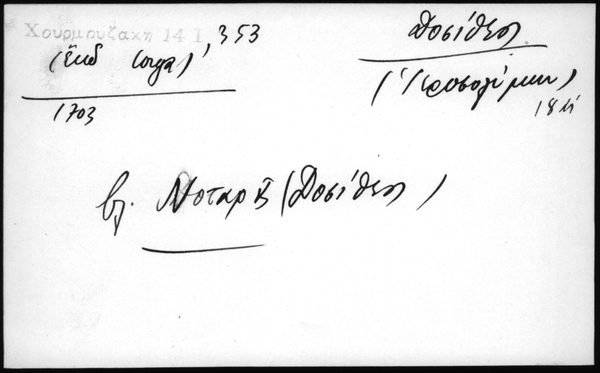 Χουρμουζάκη 14 Ι, 353
(ἔκδ Ιόργα)
1703
Δοσίθεος
(Ἱεροσολύμων)
βλ. Νοταρᾶς (Δοσίθεος)